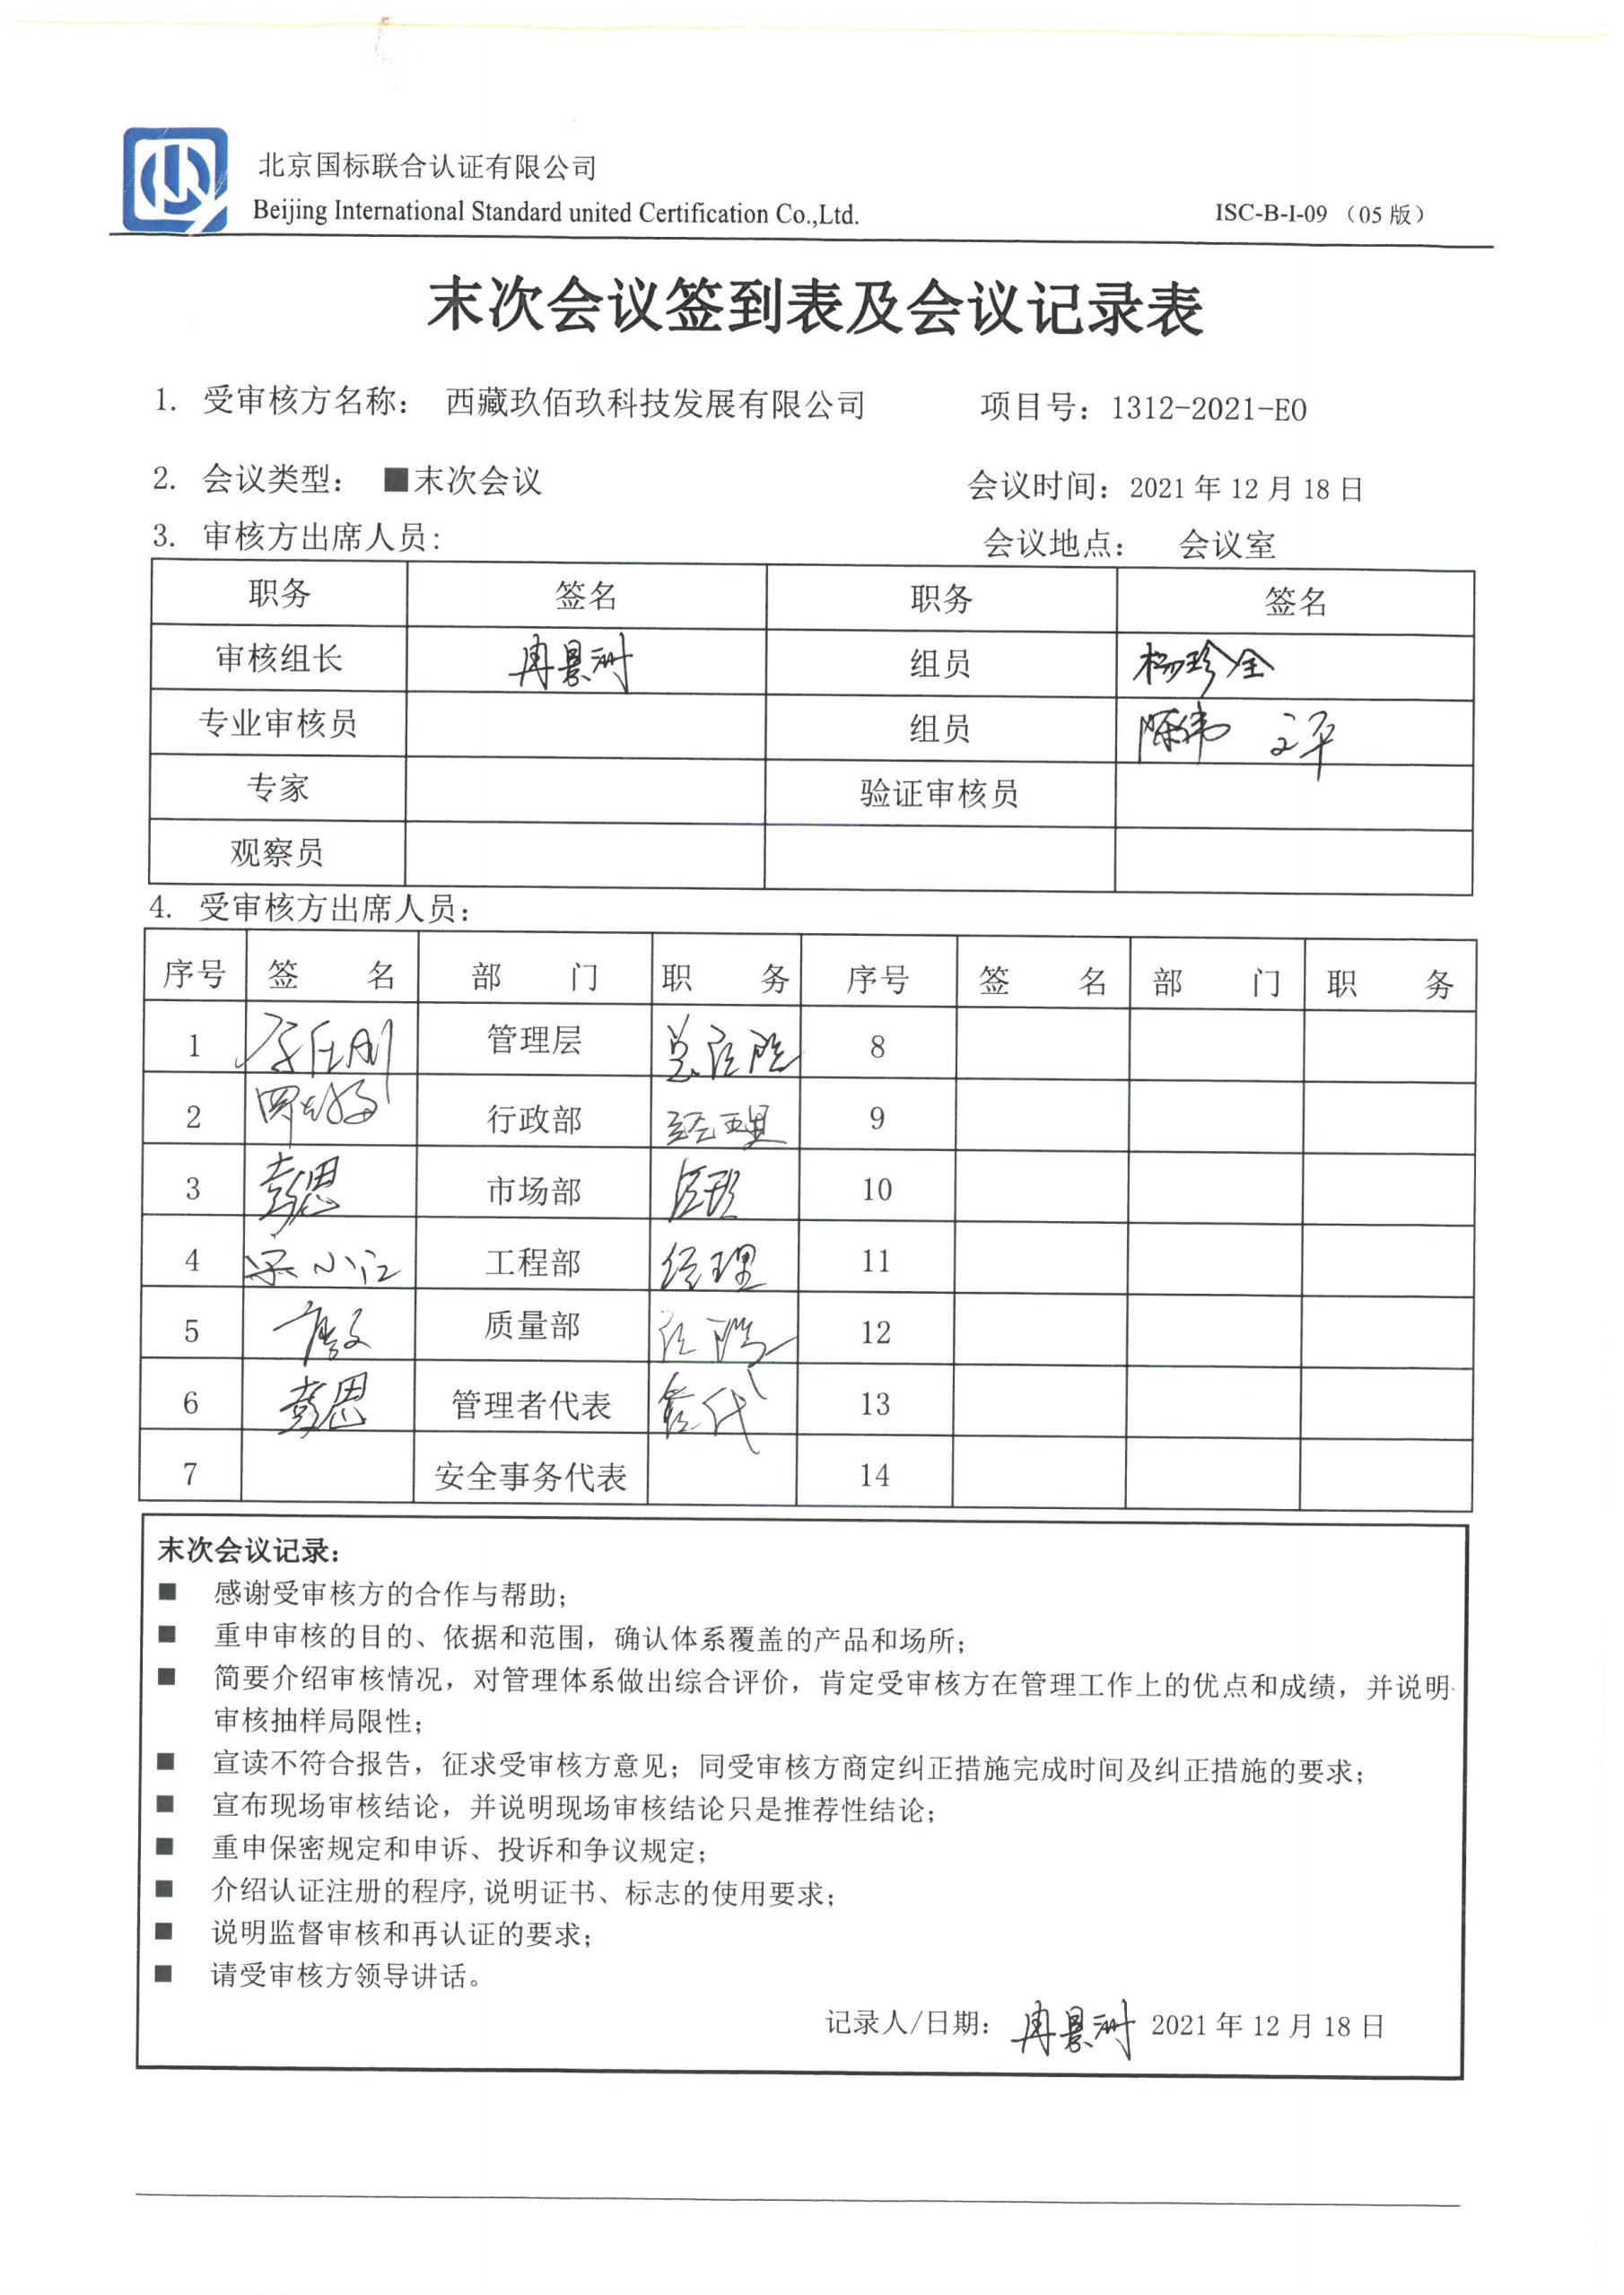 北京国标联合认证有限公司
Beijing International Standard united Certification Co.,Ltd.
ISC-B-I-09 （05 版）
末次会议签到表及会议记录表
1. 受审核方名称： 西藏玖佰玖科技发展有限公司 项目号：1312-2021-EO
2. 会议类型： ■末次会议 会议时间：2021 年 12 月 18 日
3. 审核方出席人员： 会议地点： 会议室
职务 签名 职务 签名
审核组长 冉景洲 组员 杨珍全
专业审核员 组员 陈伟 文平
专家 验证审核员
观察员
4. 受审核方出席人员：
序号 签 名 部 门 职 务 序号 签 名 部 门 职 务
1 管理层 8
2 行政部 经理 9
3 彭思 市场部 经理 10
4 梁小江 工程部 经理 11
5 唐文 质量部 12
6 彭思 管理者代表 管代 13
7 安全事务代表 14
末次会议记录：
■ 感谢受审核方的合作与帮助；
■ 重申审核的目的、依据和范围，确认体系覆盖的产品和场所；
■ 简要介绍审核情况，对管理体系做出综合评价，肯定受审核方在管理工作上的优点和成绩，并说明
审核抽样局限性；
■ 宣读不符合报告，征求受审核方意见；同受审核方商定纠正措施完成时间及纠正措施的要求；
■ 宣布现场审核结论，并说明现场审核结论只是推荐性结论；
■ 重申保密规定和申诉、投诉和争议规定；
■ 介绍认证注册的程序,说明证书、标志的使用要求；
■ 说明监督审核和再认证的要求；
■ 请受审核方领导讲话。
记录人/日期： 冉景洲 2021 年 12 月 18 日